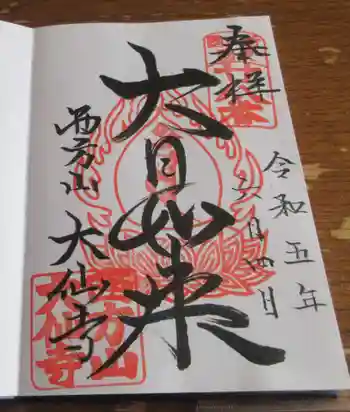 奉拝
令和五年
六月四日
大日如来
西方山
大仙寺
西方山
大仙寺